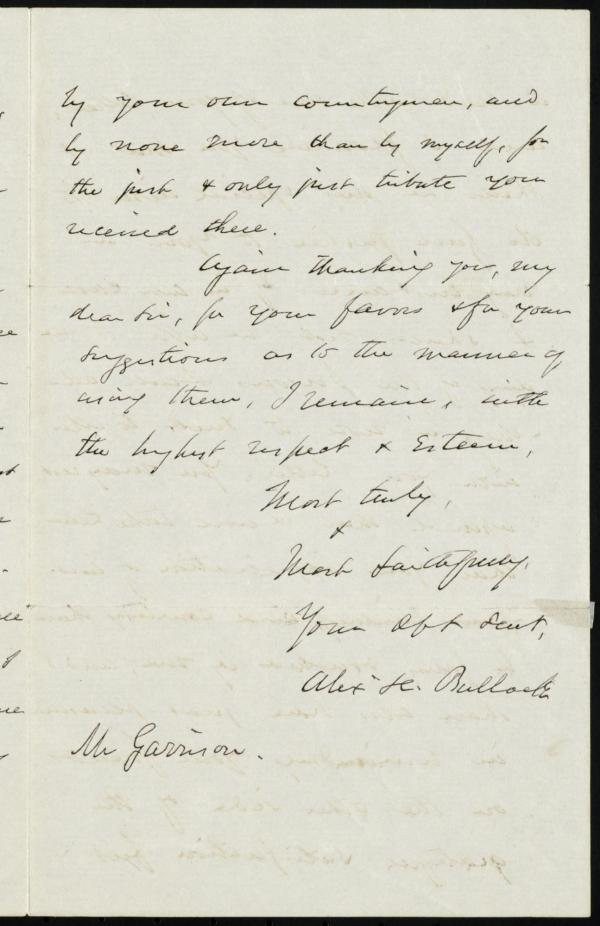 by your own countrymen, and
by none more than by myself, for
the just & only just tribute you
received there.
Again thanking you, my
dear Sir, for your favors & for your
suggestions as to the manner of
using them, I remain, with
the highest respect & esteem,
Most truly,
&
Most faithfully,
Your Obt Servt,
Alex H. Bullock
Mr Garrison.